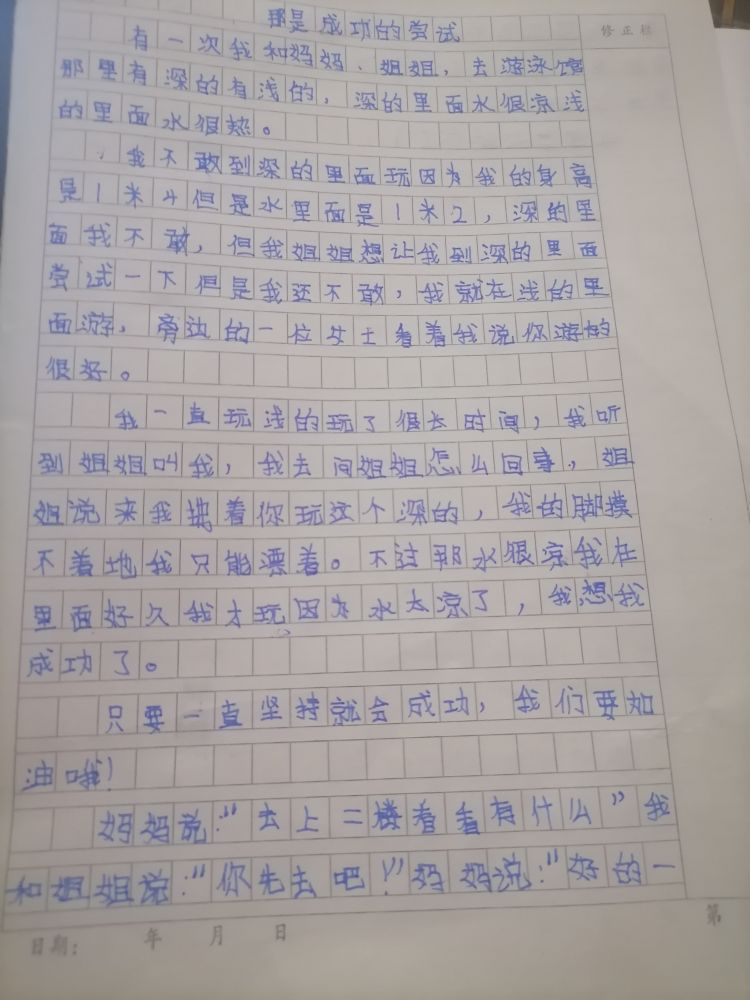 那是成功的尝试
修正栏
有一次我和妈妈、姐姐，去游泳馆
那里有深的有浅的，深的里面水很凉浅
的里面水很热。
，我不敢到深的里面玩因为我的身高
是1米4但是水里面是1米2，深的里
面我不敢，但我姐姐想让我到深的里面
尝试一下但是我还不敢，我就在浅的里
面游，旁边的一位女士看着我说你游的
很好。
我一直玩浅的玩了很长时间，我听
到姐姐叫我，我去问姐姐怎么回事，姐
姐说来我拽着你玩这个深的，我的脚摸
不着地我只能漂着。不过那水很凉我在
里面好久我才玩因为水太凉了，我想我
成功了。
只要一直坚持就会成功，我们要加
油哦！
妈妈说：“去上二楼看看有什么”我
和姐姐说：“你先去吧！”妈妈说：“好的一
日期：　年　月　日
第